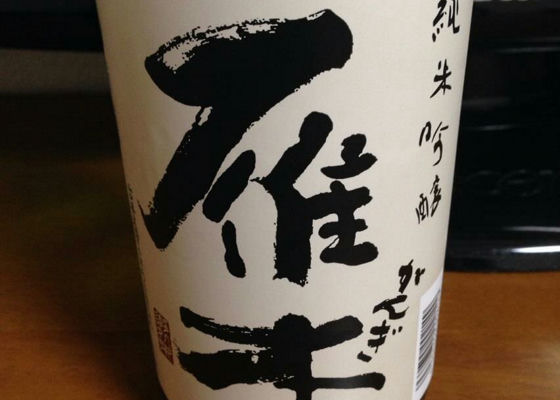 純米吟醸
雁木
がんぎ